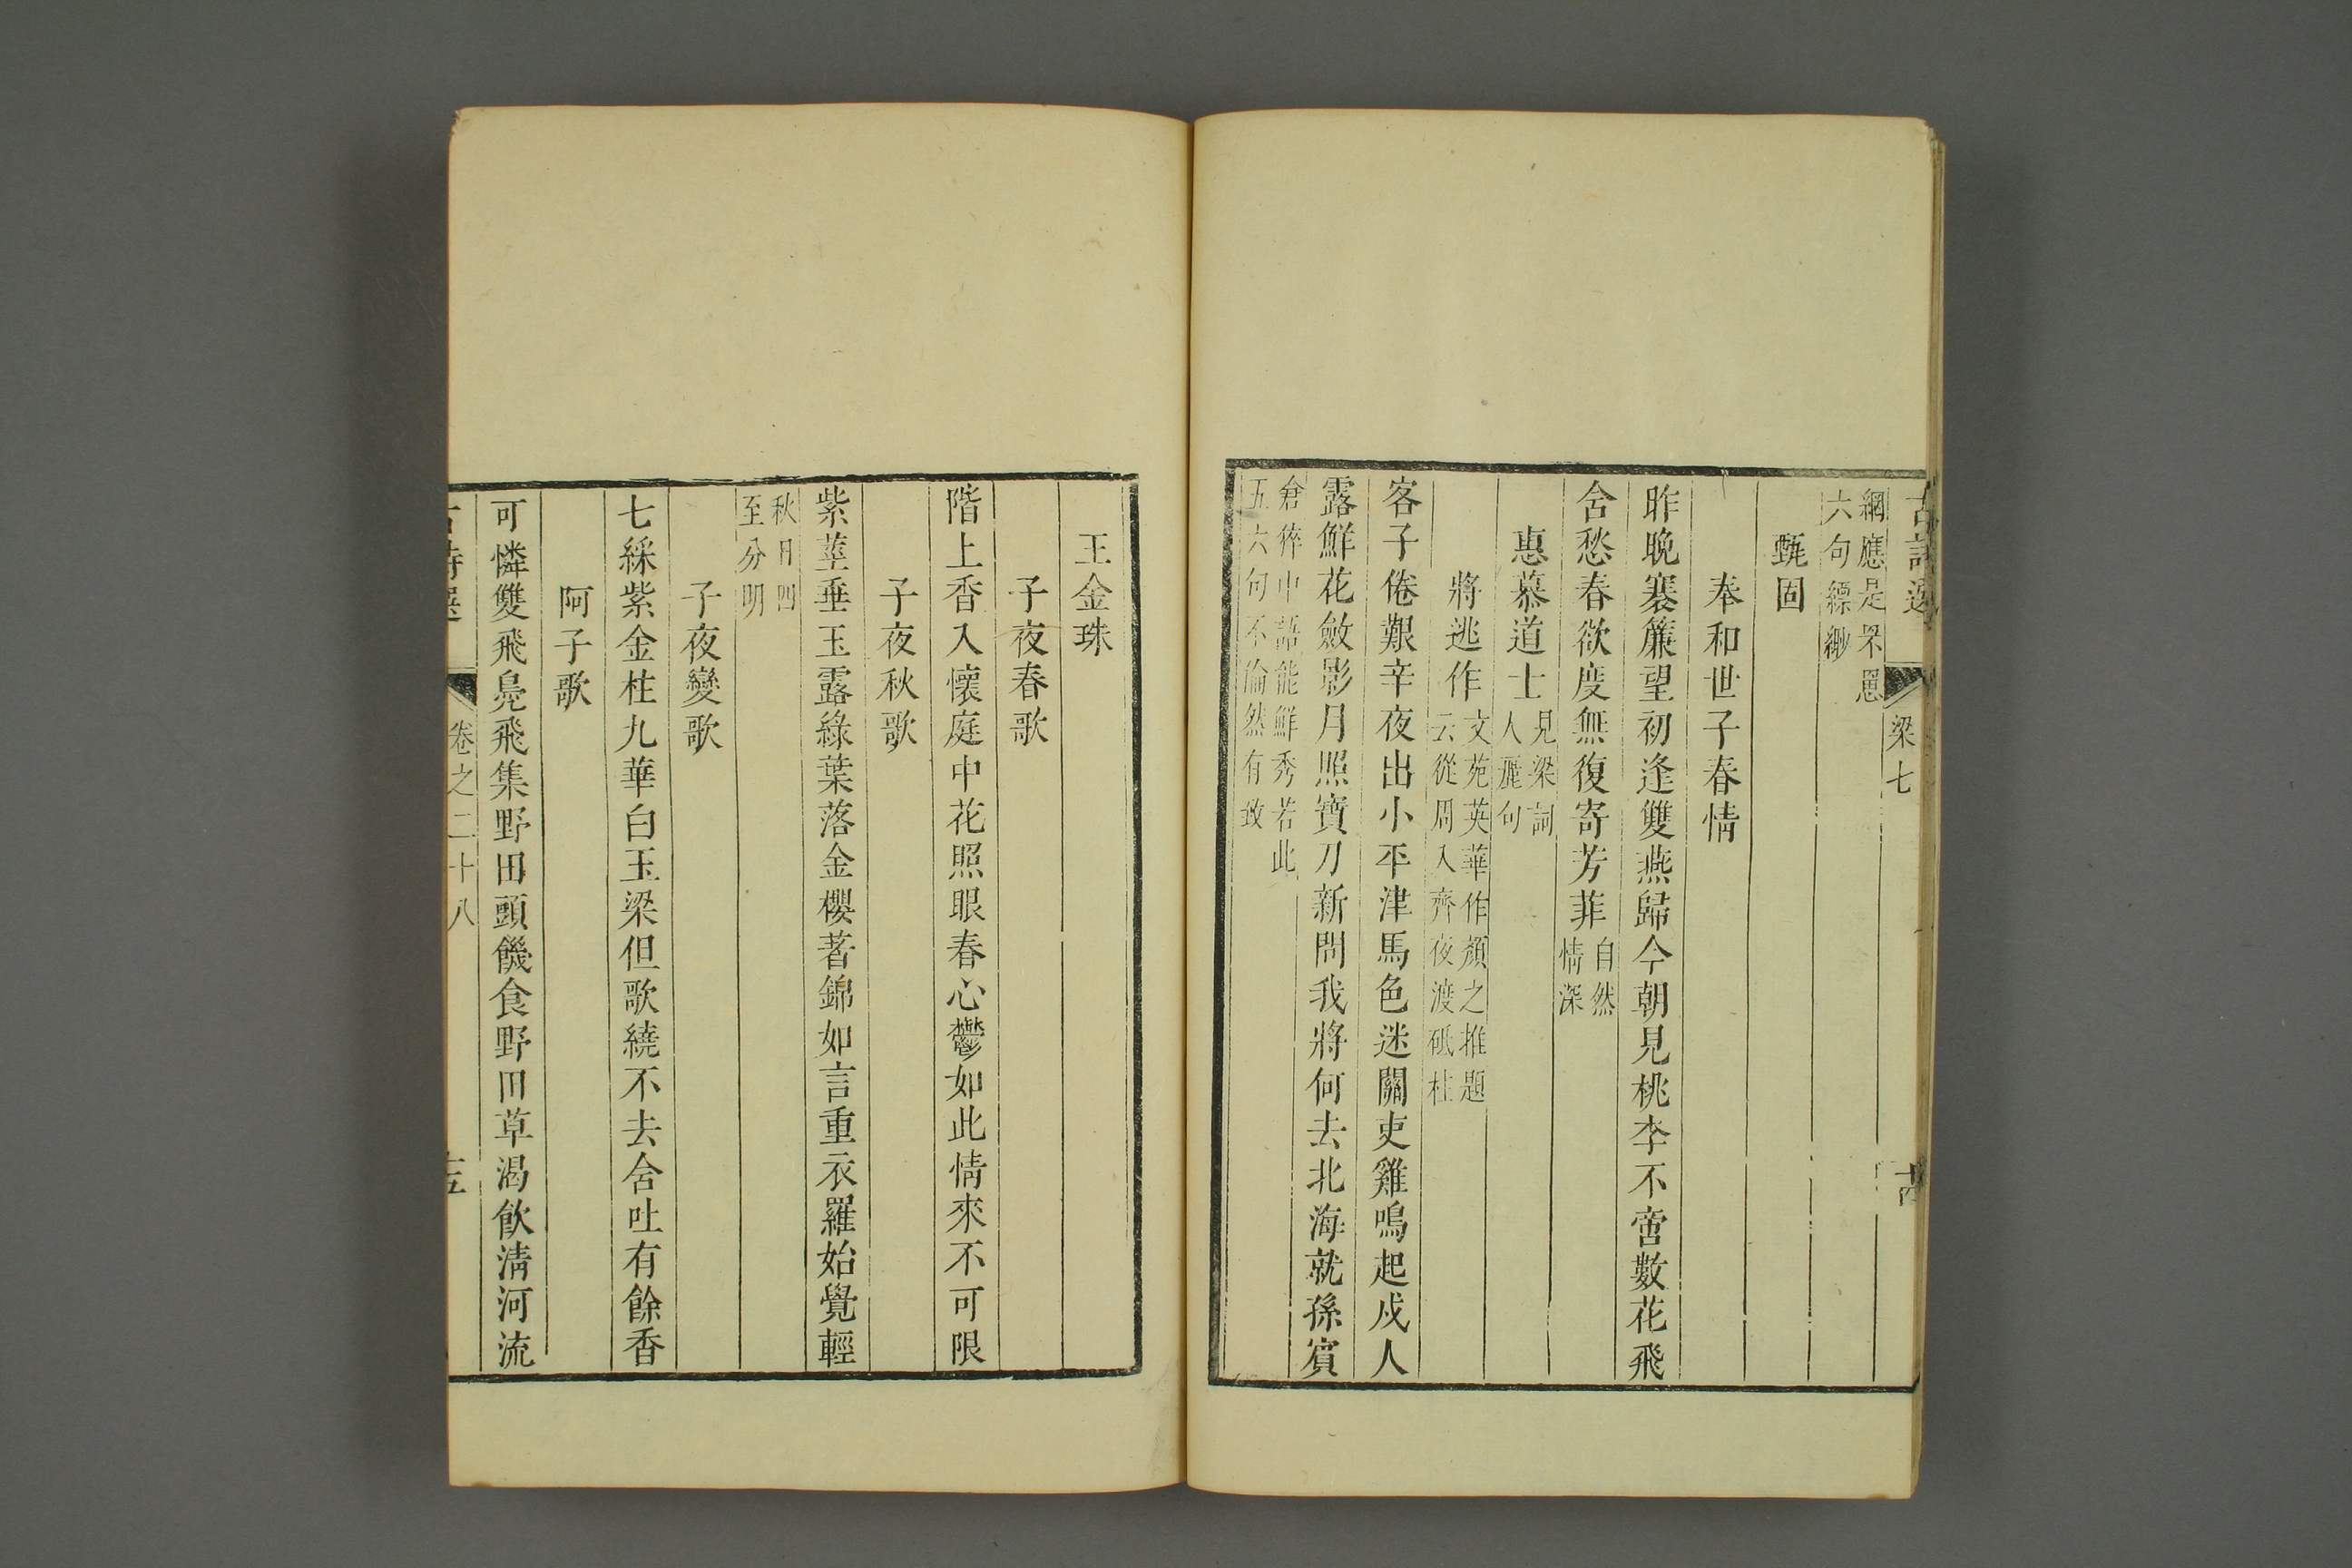 古詩選 梁七 十四
網應是罘罳
六句縹緲
甄固
奉和世子春情
昨晚褰簾望初逢雙燕歸今朝見桃李不啻數花飛
含愁春欲度無復寄芳菲自然情深
惠慕道士見梁詞人麗句
將逃作文苑英華作顏之推題云從周入齊夜渡砥柱
客子倦艱辛夜出小平津馬色迷關吏雞鳴起戍人
露鮮花斂影月照寶刀新問我將何去北海就孫賓
倉猝中語能鮮秀若此
五六句不淪然有致
王金珠
子夜春歌
階上香入懷庭中花照眼春心鬱如此情來不可限
子夜秋歌
紫莖垂玉露綠葉落金櫻著錦如言重衣羅始覺輕
秋日四
至分明
子夜變歌
七綵紫金柱九華白玉梁但歌繞不去含吐有餘香
阿子歌
可憐雙飛鳧飛集野田頭饑食野田草渴飲清河流
古詩選 卷之二十八 十五